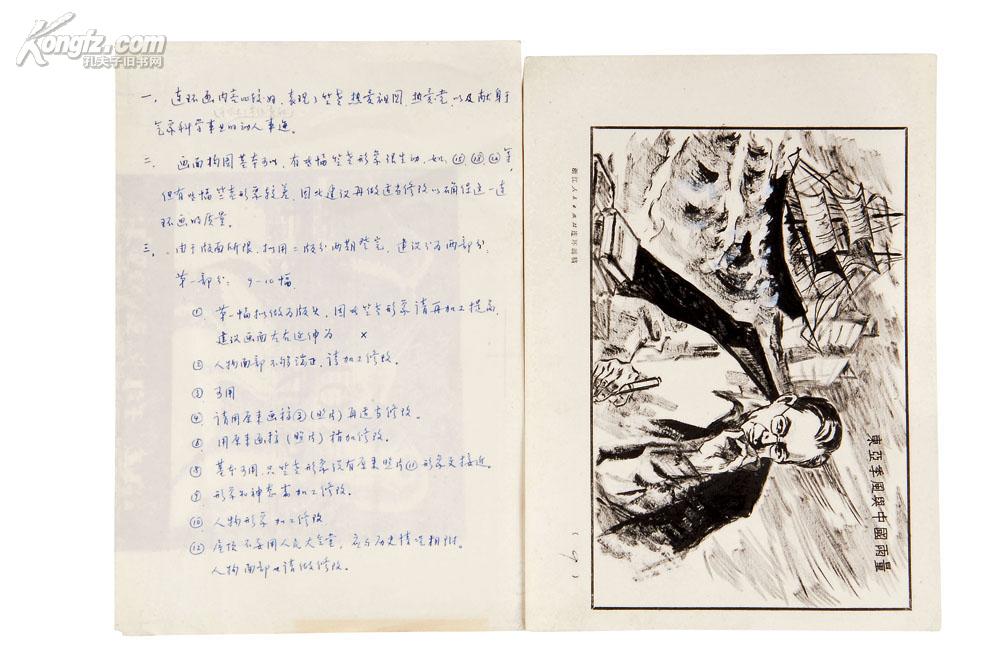 Kongfz.com
孔夫子旧书网
一、连环画内容比较好，表现了竺老热爱祖国，热爱党，以及献身于
气象科学事业的动人事迹。
二、画面构图基本可以，有些幅竺老形象很生动，如，⑮ ⑱ ㉔ 等，
但有些幅竺老形象较差，因此建议再做适当修改以确保这一连
环画的质量。
三、由于版面所限，拟用二版分两期登完，建议分为两部分：
第一部分： 9-10幅
① 第一幅拟做为版头，因此竺老形象请再加工提高，
建议画面左右延伸为 ×
② 人物面部不够端正，请加工修改。
③ 可用
④ 请用原来画稿②(照片)再适当修改。
⑤ 用原来画稿(照片)稍加修改。
基本可用，只竺老形象没有原来照片⑪形象更接近。
⑨ 形象和神态需加工修改。
⑩ 人物形象加工修改
⑫ 屋顶不要用人民大会堂，应与历史情况相符。
人物面部也请做修改。
浙江人民出版社连环画稿
東亞季風與中國雨量
(9)